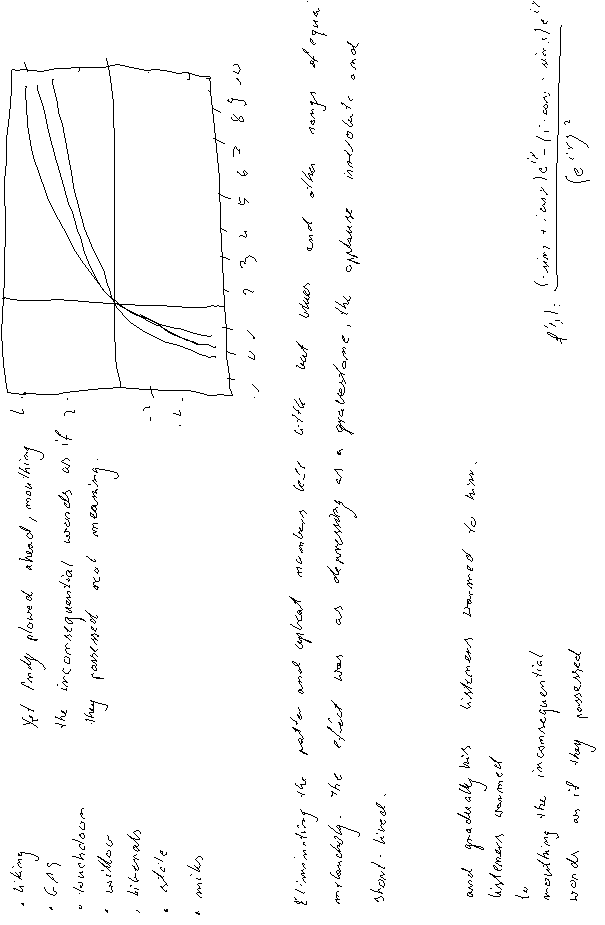 • liking
• GAS
• touchdown
• willow
• liberals
• stile
• mils
Yet Andy plowed ahead, mouthing
the inconsequential words as if
they possessed real meaning.
2
-2
0
1
2
3
5
6
7
8
9
10
Eliminating the patter and upbeat numbers left little but blues and other songs of equal
melancholy. The effect was as depressing as a gravestone, the applause irresolute and
short-lived.
and gradually his listeners warmed to him.
listeners warmed
to
mouthing the inconsequential
words as if they possessed
(e^{ix})^2